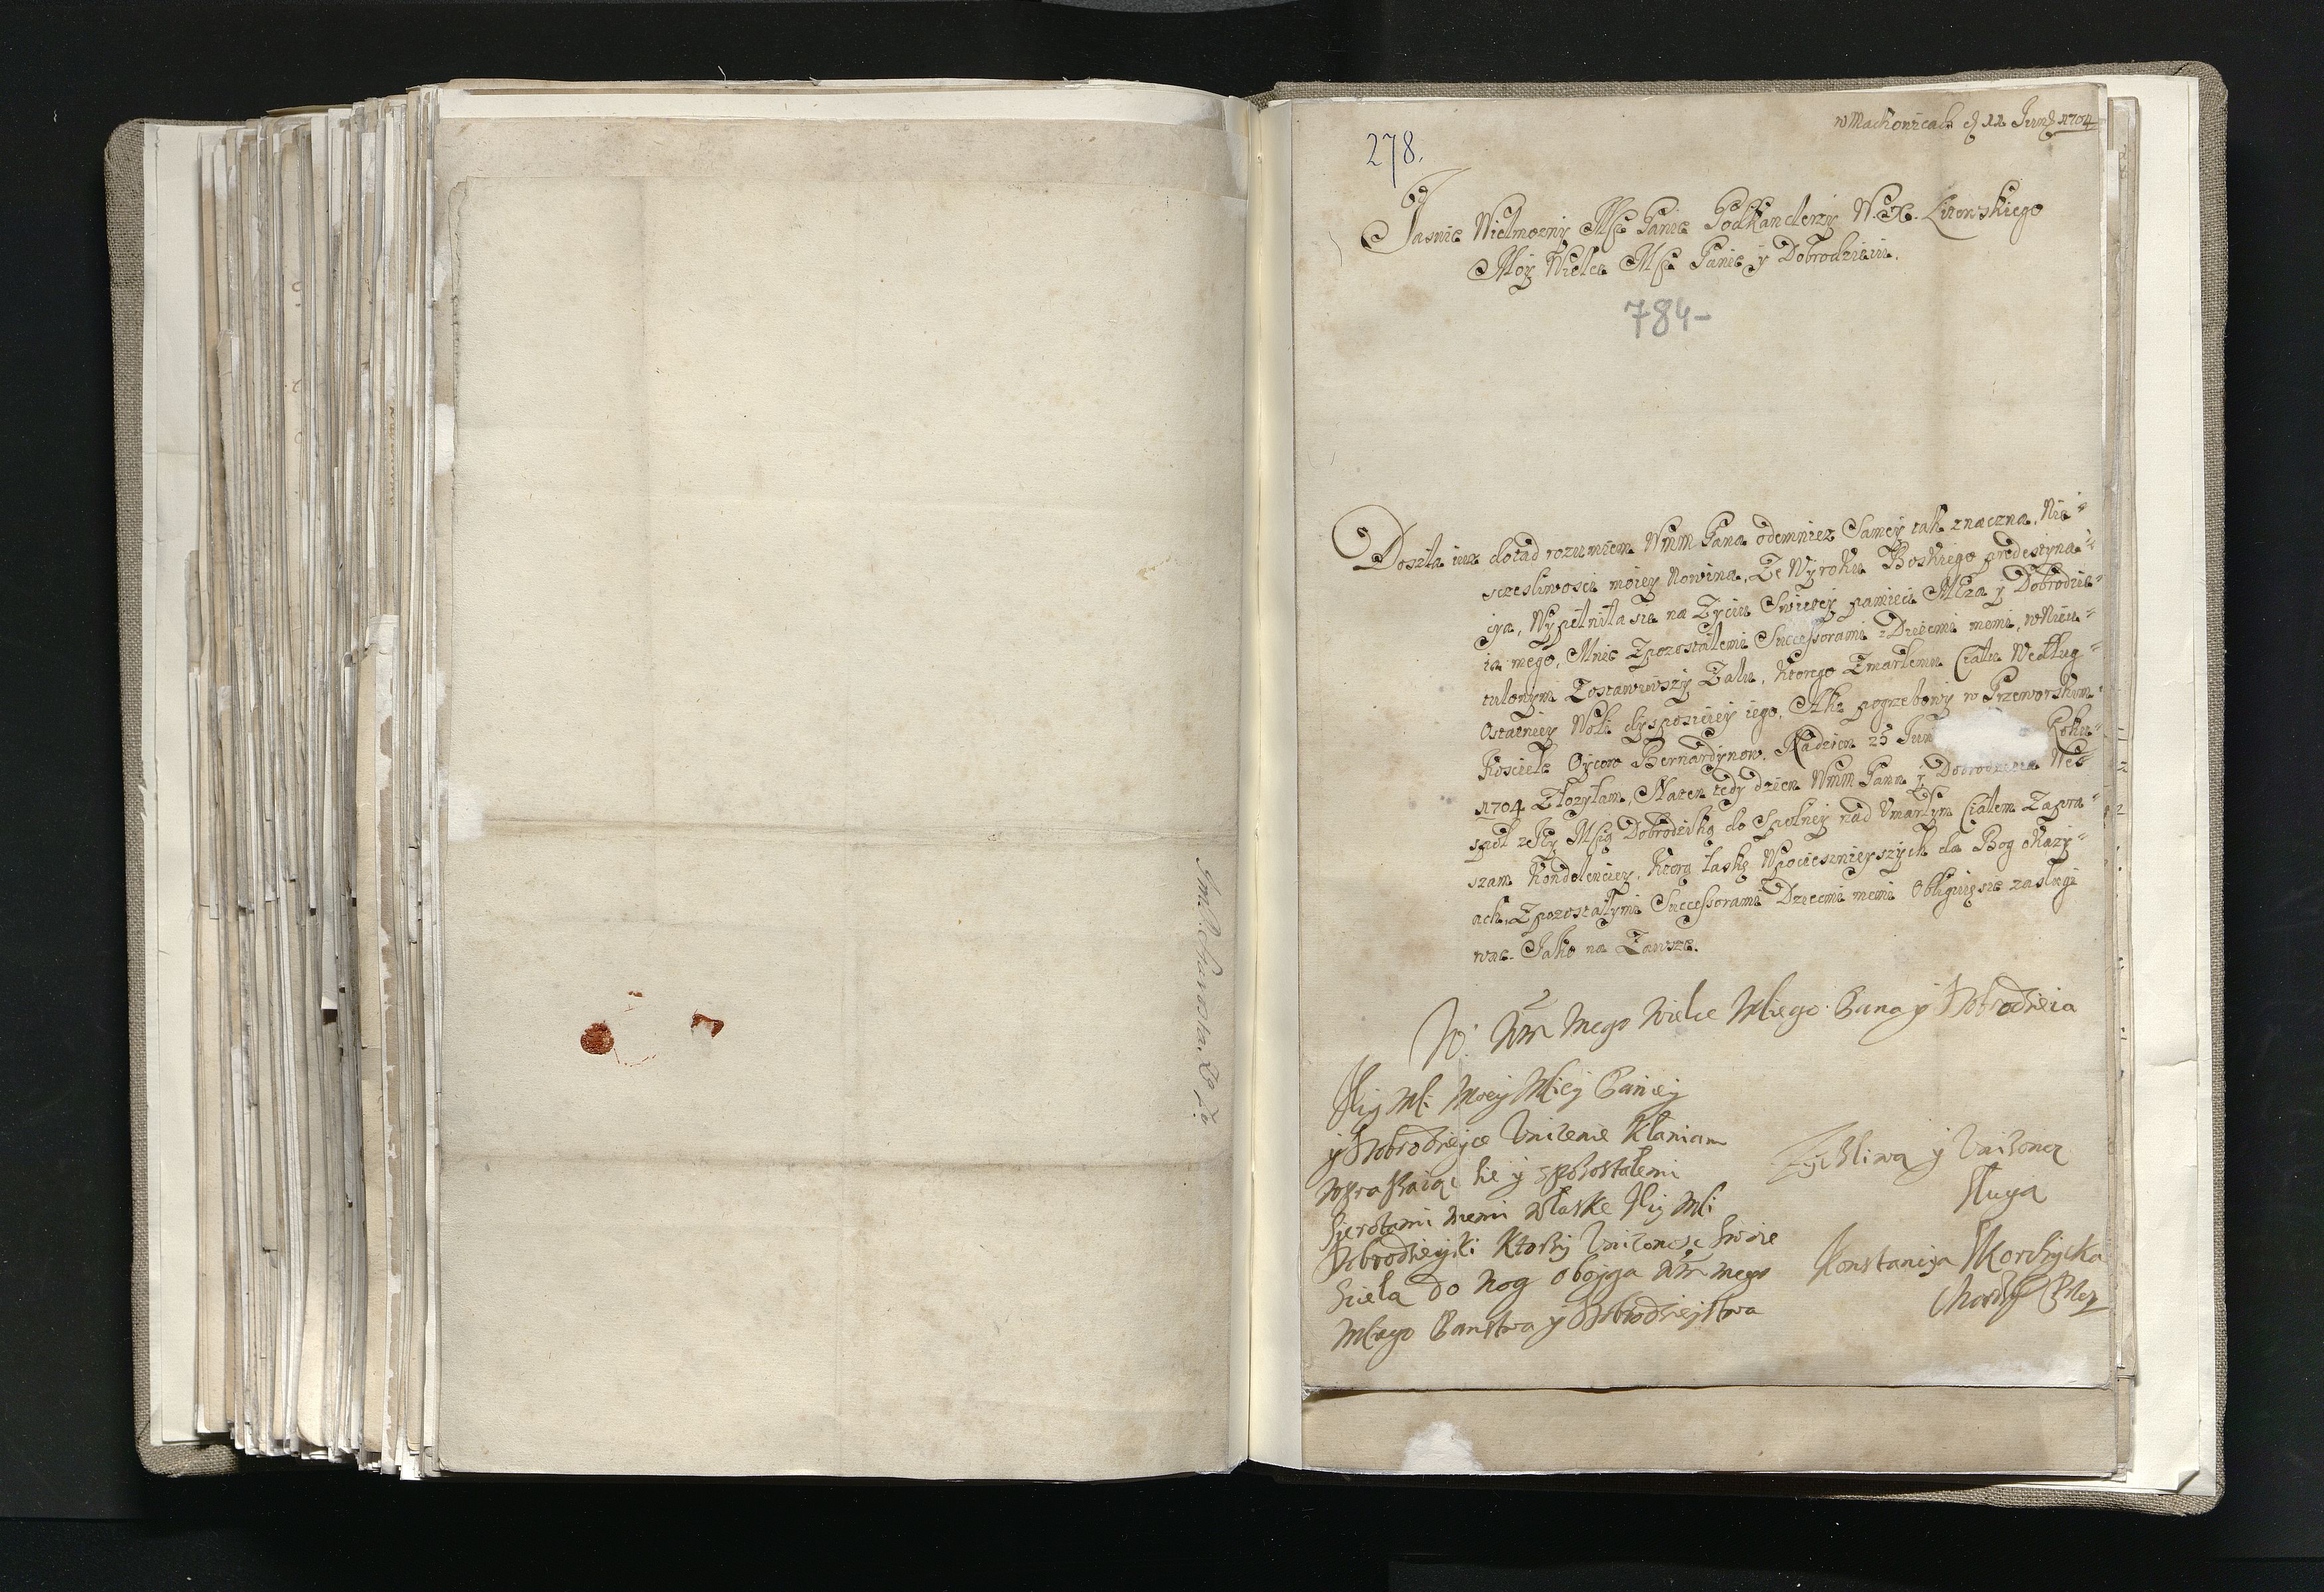 w Machowicach d 11 Junij 1704
278.
Jasnie Wielmozny Msc Panie Podkanclerzy W. X. Litewskiego
Moy Wielce Msc Panie y Dobrodzieiu.
784-
Doszła iuz dotad rozumiem Wmm Pana odemniez Samey tak znaczna, Nie-
sczesliwosci moiey Nowina, Ze Wyroku Boskiego predestyna-
cya, Wypełniła sie na Zyciu Swietey pamieci Męza y Dobrodzie-
ia mego, Mnie Zpozostałemi Successorami z Dziecmi memi, w Nieu-
tulonym Zostawiwszy Zalu, ktorego Zmarłemu Ciału Według
Ostatniey Woli dysposiciey iego, Akt pogrzebowy w Przeworskim
Kosciele Oycow Bernardynow, Nadzien 25 Jun Roku
1704 Złozyłam, Naten tedy dzien Wmm Pana y Dobrodzieia We
społ z Jey Mscią Dobrodziką do Spolney nad Umarłym Ciałem Zapra-
szam Kondolenciey, Ktorą łaskę Wpocieszniejszych da Bog okazy-
ach, Zpozostałymi Successorami Dziecmi memi Obliguię sie zasługi
wac. Jako na Zawsze.
W: Wm Mego Wielce Mciego Pana y Dobrodzieia
Jey Mci Moiey Mciey Paniey
y Dobrodzieyce Unizenie Kłaniam
wpraszaiąc sie y zpozostałemi
Sierotami memi w łaske Jey Mci
Dobrodzieyki Ktorzy Unizonosc swoie
sciela do Nog oboyga Wm mego
Mciego Panstwa y Dobrodzieystwa
Zyczliwa y Unizona
Sługa
Konstancya Skorzycka